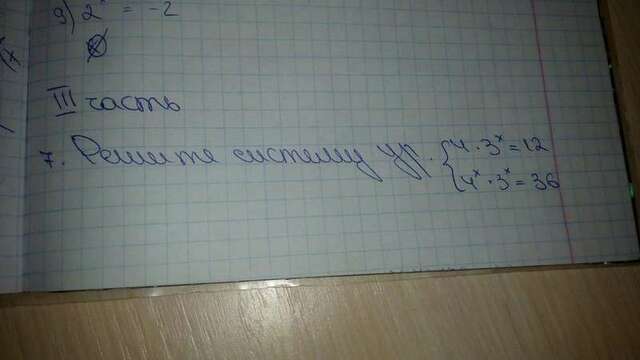 9) 2ˣ = -2
III часть
7. Решите систему ур. { 4 · 3ˣ = 12
4ˣ · 3ˣ = 36